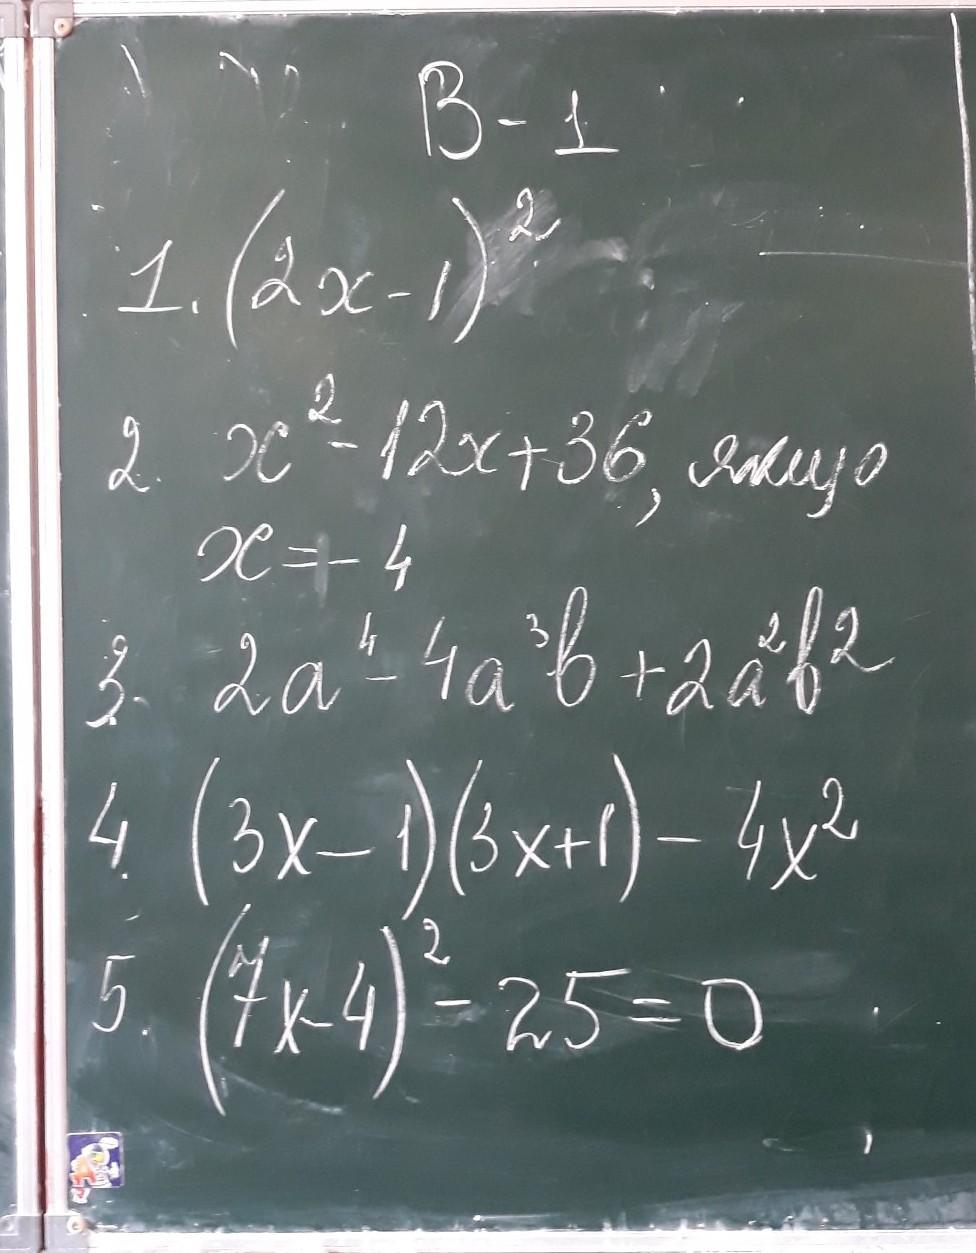 В - 1
1. (2x - 1)²
2. x² - 12x + 36, якщо
x = - 4
3. 2a⁴ - 4a³b + 2a²b²
4. (3x - 1)(3x + 1) - 4x²
5. (7x - 4)² - 25 = 0